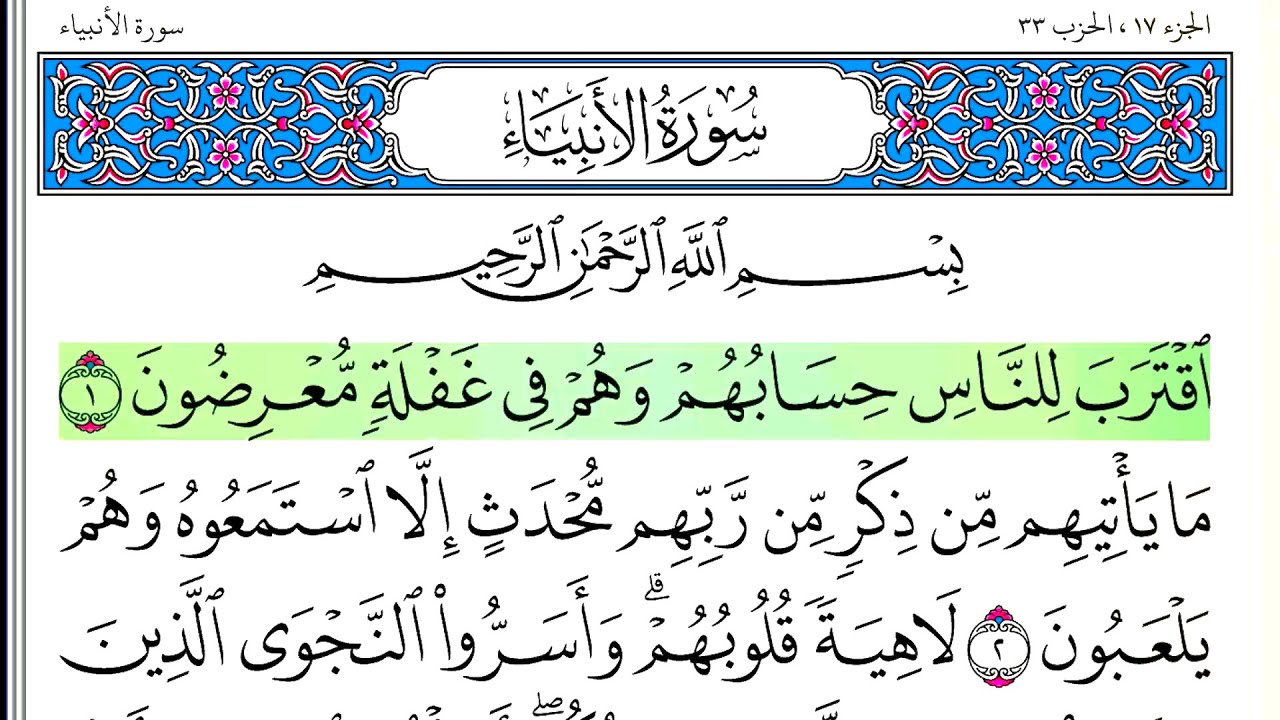 الجزء ١٧ ، الحزب ٣٣
سورة الأنبياء
سُورَةُ الأَنبِيَاءِ
بِسْمِ ٱللَّهِ ٱلرَّحْمَٰنِ ٱلرَّحِيمِ
ٱقْتَرَبَ لِلنَّاسِ حِسَابُهُمْ وَهُمْ فِى غَفْلَةٍ مُّعْرِضُونَ ١
مَا يَأْتِيهِم مِّن ذِكْرٍ مِّن رَّبِّهِم مُّحْدَثٍ إِلَّا ٱسْتَمَعُوهُ وَهُمْ
يَلْعَبُونَ ٢ لَاهِيَةً قُلُوبُهُمْ ۗ وَأَسَرُّوا۟ ٱلنَّجْوَى ٱلَّذِينَ